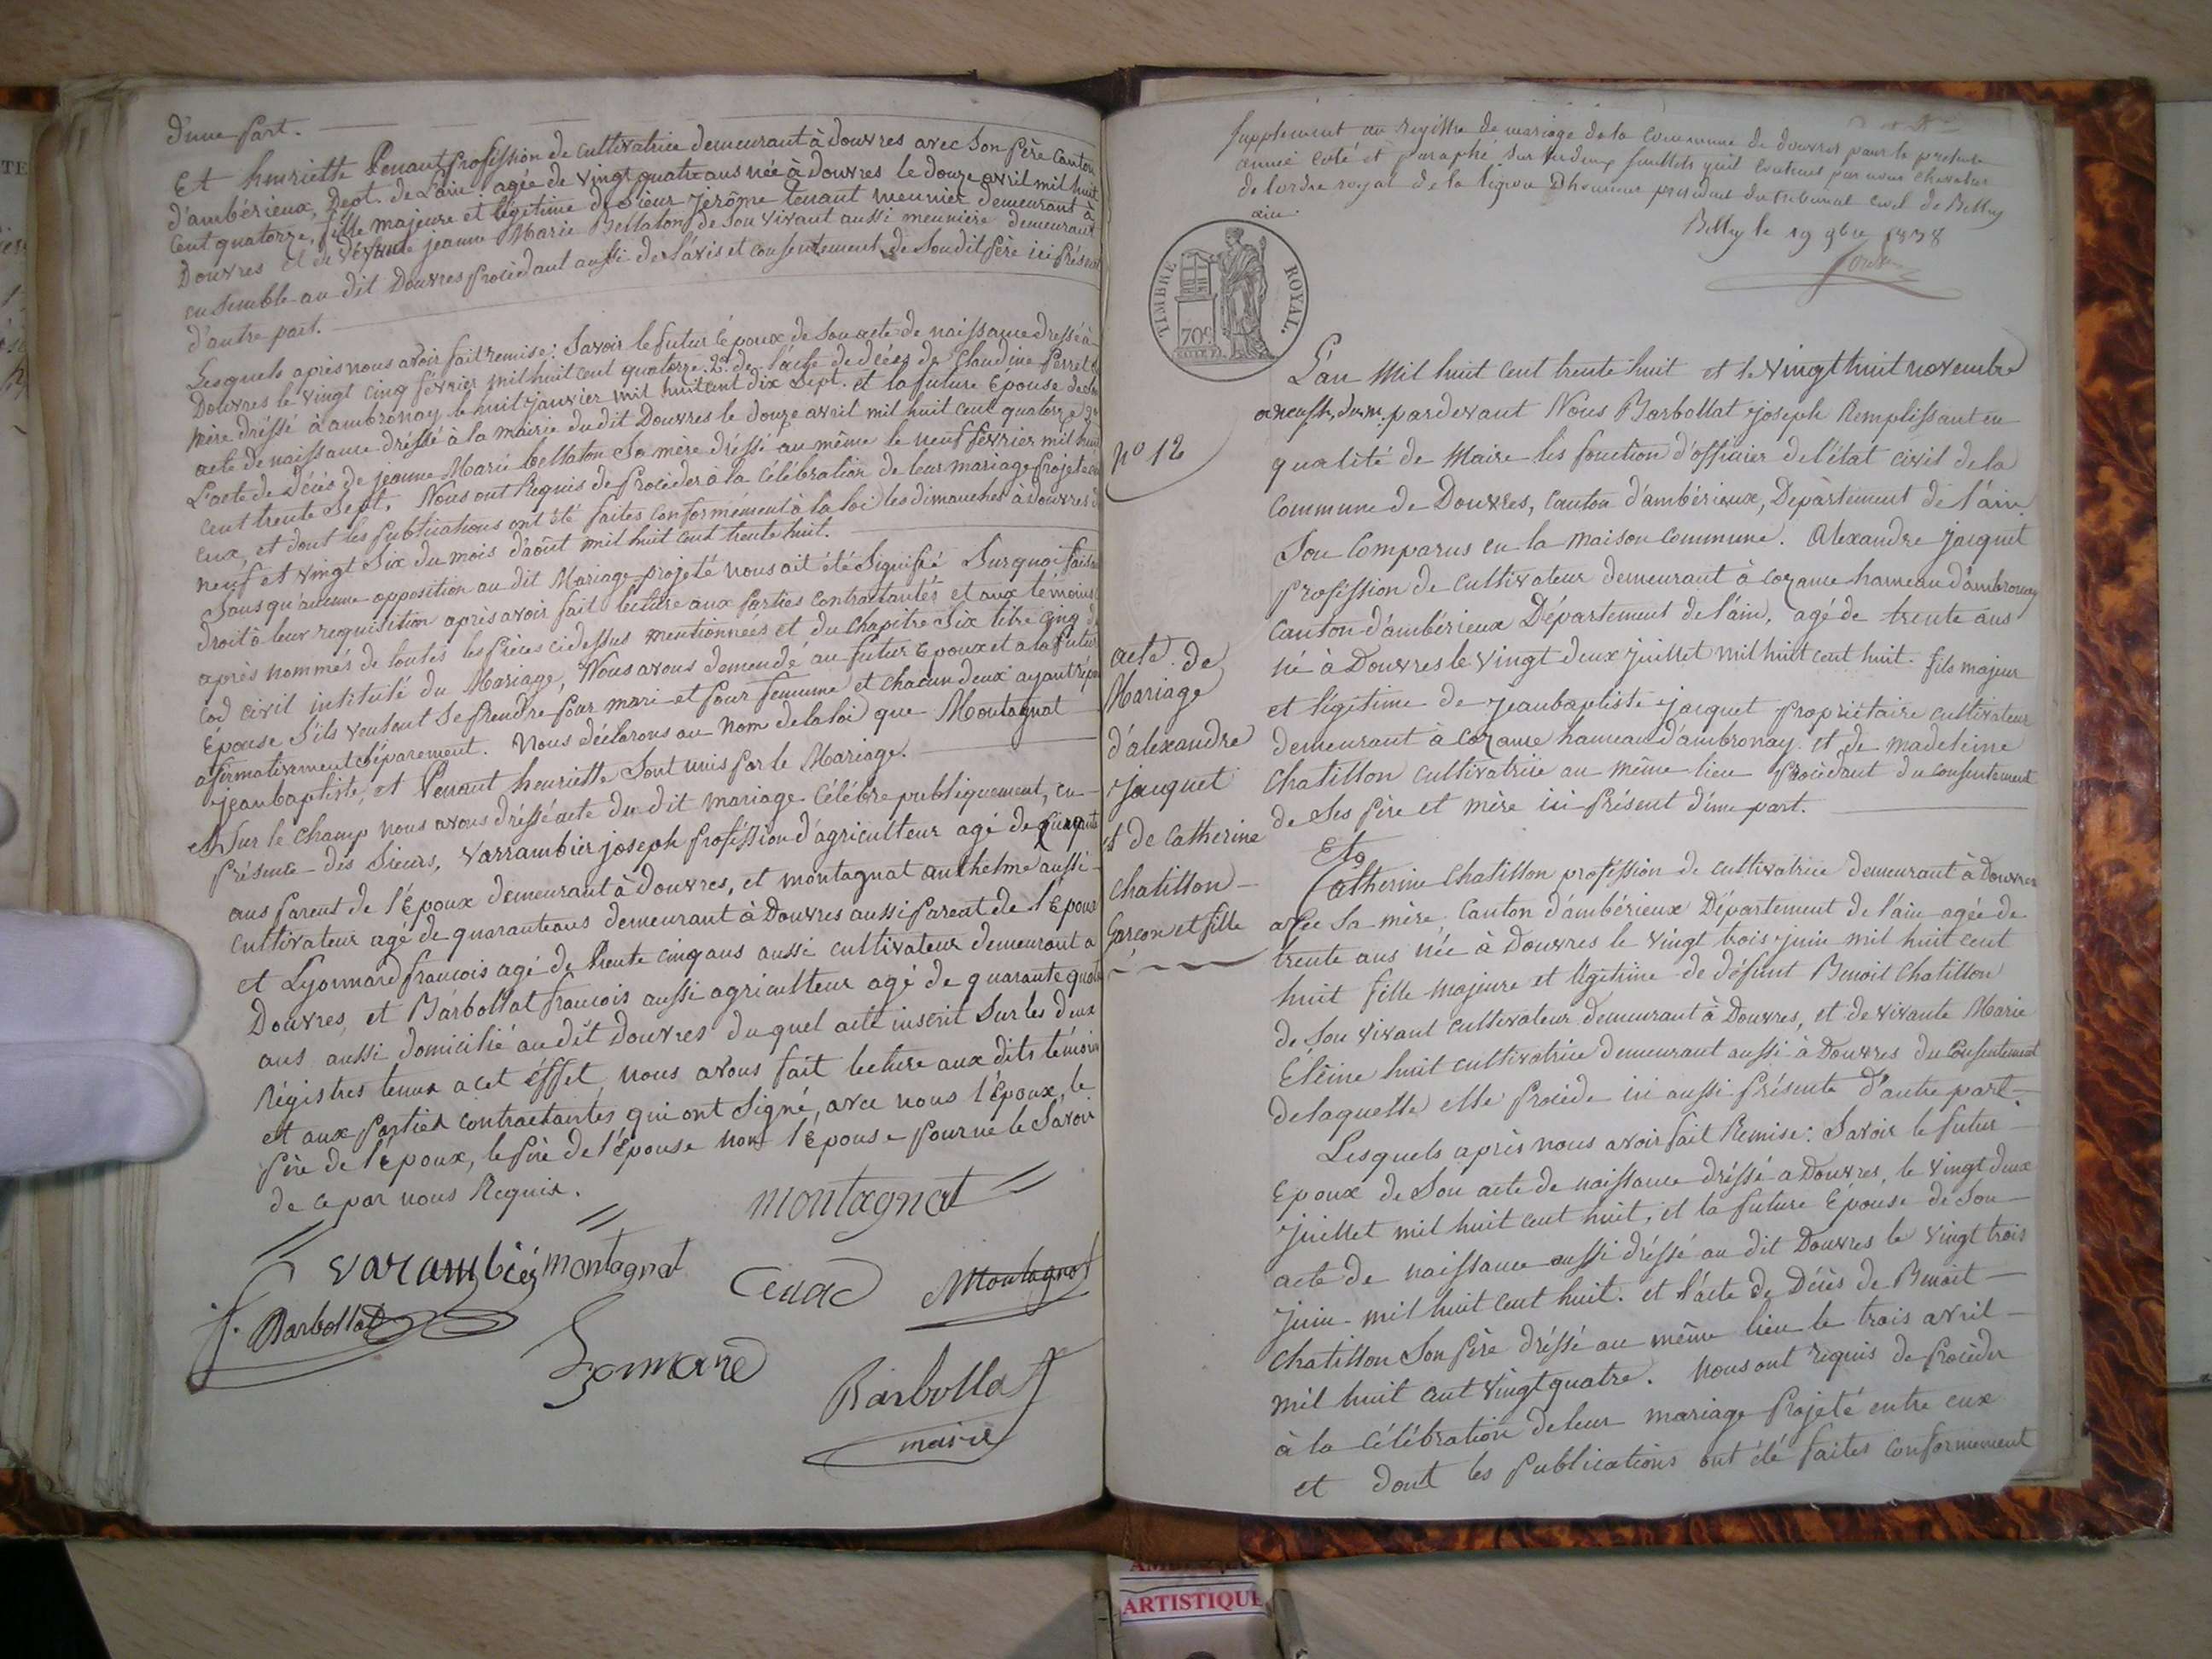 d'une part.
Et henriette Penant profession de cultivatrice demeurant à douvres avec son père canton
d'ambérieux, Dept. de l'ain agée de vingt quatre ans née à douvres le douze avril mil huit
cent quatorze, fille majeure et légitime de Sieur jerôme tenant meunier demeurant à
Douvres et de jeanne Marie Bellaton de son vivant aussi meunière demeurant
ensemble au dit Douvres procédant aussi de l'avis et consentement de son dit père ici présent
d'autre part.
Lesquels après nous avoir fait remise: Savoir le futur époux de son acte de naissance dressé à
Douvres le vingt cinq février mil huit cent quatorze. 2º de l'acte de décès de Claudine Perret
mère dréssé à ambronay le huit janvier mil huit cent dix sept. et la future Epouse de son
acte de naissance dréssé à la mairie du dit Douvres le douze avril mil huit cent quatorze 2º
L'acte de décès de jeanne Marie bellaton Sa mère dréssé au même le neuf février mil huit
cent trente sept. Nous ont Requis de procéder à la célébration de leur mariage projeté entre
eux, et dont les publications ont été faites conformément à la loi les dimanches à douvres
neuf et vingt six du mois d'août mil huit cent trente huit.
Sans qu'aucune opposition au dit Mariage projeté nous ait été signifié Sur quoi faisant
droit à leur requisition après avoir fait lecture aux parties contractantes et aux témoins
après nommés de toutes les pièces ci dessus mentionnées et du chapitre six titre cinq du
cod civil intitulé du Mariage, Nous avons demendé au futur Epoux et a la future
Épouse s'ils veulent se prendre pour mari et pour femme et chacun deux ayant répondu
afirmativement séparement. Nous déclarons au nom de la loi que Montagnat
jeanbaptiste, et Penant henriette Sont unis par le Mariage.
et Sur le champ nous avons dréssé acte du dit mariage célébré publiquement, en
présence des Sieurs, Varrambier joseph profession d'agriculteur agé de cinquante
ans parent de l'Epoux demeurant à douvres, et montagnat anthelme aussi
cultivateur agé de quarante ans demeurant à Douvres aussi parent de l'Epoux
et Lyonnard francois agé de trente cinq ans aussi cultivateur demeurant a
Douvres, et Barbollat francois aussi agriculteur agé de quarante quatre
ans aussi domicilié au dit Douvres du quel acte inscrit sur les deux
Régistres tenus a cet éffet nous avons fait lecture aux dits témoins
et aux parties contractantes qui ont signé, avec nous l'époux, le
père de l'Epoux, le père de l'Epouse non l'Epouse pour ne le Savoir
de ce par nous Requis.
montagnat
varambier montagnat
Montagnat
Barbollat
Barbollat
maire
Supplement au registre de mariage de la commune de douvres pour la presente
année coté et paraphé sur les deux feuillets qu'il contient par nous chevalier
de l'ordre royal de la légion D'honneur president du tribunal civil de Belley
ain.
Belley le 19 9bre 1838
TIMBRE ROYAL.
70c.
L'an mil huit cent trente huit et le vingt huit novembre
pardevant Nous Barbollat joseph Remplissant en
qualité de Maire les fonction d'officier de l'état civil de la
commune de Douvres, canton d'ambérieux, Département de l'ain.
Son Comparus en la maison commune. Alexandre jacquet
Profession de cultivateur demeurant à cozance hameau d'ambronay
canton d'ambérieux Département de l'ain, agé de trente ans
né à Douvres le vingt deux juillet mil huit cent huit. fils majeur
et légitime de jeanbaptiste jacquet propriétaire cultivateur
demeurant à cozance hameau d'ambronay. et de madeleine
Chatillon cultivatrice au même lieu procédant du consentement
de ses père et mère ici présent d'une part.
no 12
acte de
Mariage
d'alexandre
jacquet
et de catherine
chatillon
Garcon et fille
Et
Catherine Chatillon profession de cultivatrice demeurant à Douvres
avec sa mère, canton d'ambérieux Département de l'ain agée de
trente ans née à Douvres le vingt trois juin mil huit cent
huit fille majeure et légitime de défunt Benoit Chatillon
de son vivant cultivateur demeurant à Douvres, et de vivante Marie
huit cultivatrice demeurant aussi à Douvres du consentement
de laquelle elle procède ici aussi présente d'autre part.
Lesquels après nous avoir fait Remise: Savoir le futur
Epoux de son acte de naissance dréssé a Douvres, le vingt deux
juillet mil huit cent huit, et la future Épouse de son
acte de naissance aussi dréssé au dit Douvres le vingt trois
juin mil huit cent huit. et l'acte de Décès de Benoit
Chatillon Son père dréssé au même lieu le trois avril
mil huit cent vingt quatre. Nous ont requis de procéder
à la célébration de leur mariage projeté entre eux
et dont les publications ont été faites conformement
ARTISTIQUE